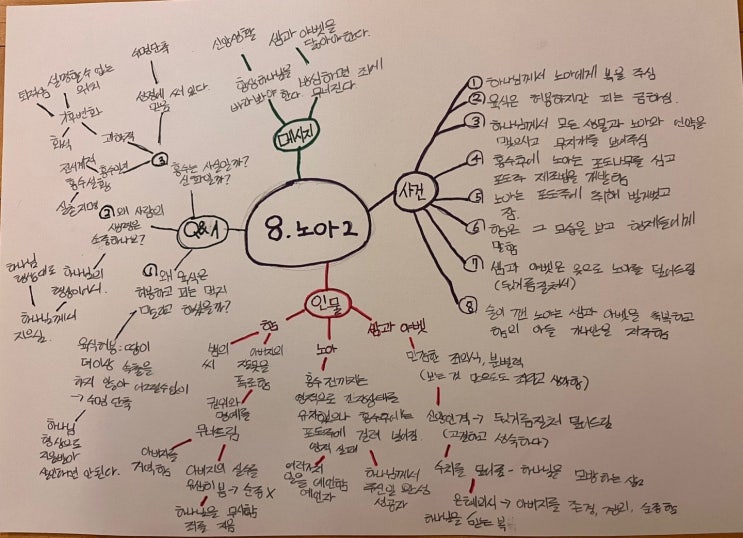 8. 노아2
사건
① 하나님께서 노아에게 복을 주심
② 육식은 허용하지만 피는 금하심.
③ 하나님께서 모든 생물과 노아와 언약을
맺으시고 무지개를 보여주심
④ 홍수후에 노아는 포도나무를 심고
포도주 제조법을 개발함
⑤ 노아는 포도주에 취해 벌거벗고
잠.
⑥ 함은 그 모습을 보고 형제들에게
말함
⑦ 셈과 야벳은 옷으로 노아를 덮어드림
(뒷걸음질쳐서)
⑧ 술이 깬 노아는 셈과 야벳을 축복하고
함의 아들 가나안을 저주함
메시지
신앙생활
항상 하나님을
바라봐야 한다.
셈과 야벳을
닮아야한다.
방심하면 죄에
무너진다
Q&A
① 왜 육식은
허용하고 피는 먹지
말라고 하셨을까?
육식허용: 땅이
더이상
하지 않아 어쩔수없이
→ 수명 단축
하나님
형상으로
안된다.
② 왜 사람의
생명은
소중하나요?
하나님의
형상이어서.
하나님
형상대로
하나님께서
지으심.
③
홍수는 사실일까?
신화일까?
성경에 써 있다.
수명단축
과학적
기후변화
설명할 수 없는
위치
퇴적층
화석
전세계적
홍수설화
인물
함
뱀의
씨
아버지의
잘못을
폭로함
권위와
명예를
무너뜨림
아버지를
아버지의 실수를
→ 순종 X
하나님을 무시함
죄를 지음
노아
홍수 전까지는
영적으로 긴장상태를
유지했으나 홍수후에는
포도주에 걸려 넘어짐
영적 실패
여러가지
일을 예언함
예언자
하나님께서
주신일 완성
성공자
셈과 야벳
민감한 죄의식, 분별력
(보는 것 만으로도 죄라고 생각함)
신앙인격 → 뒷걸음질쳐 덮어드림
(고결하고 성숙하다)
수치를 덮어줌 - 하나님을 모방하는 삶
은혜의식 → 아버지를 존경, 순종함
하나님을 복